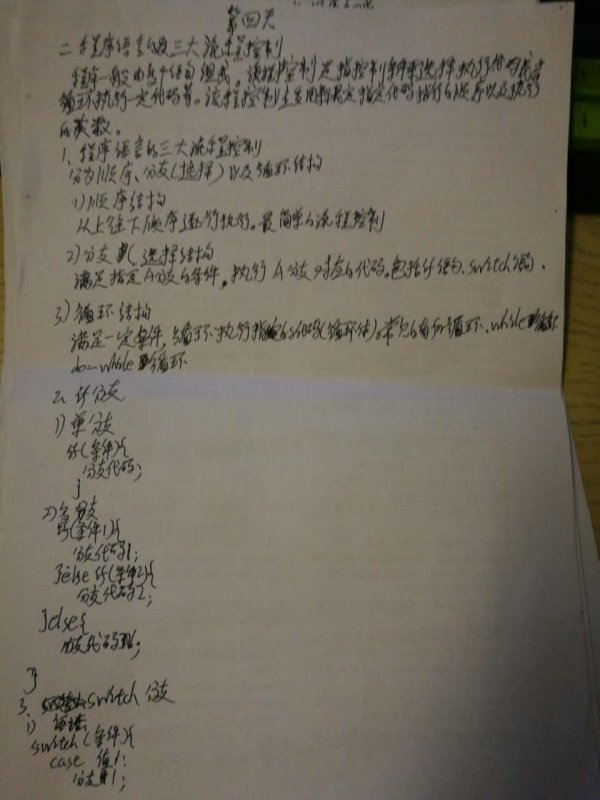 第四天
二、程序语言的三大流程控制
程序一般由多个语句组成，流程控制是指控制条件来选择执行代码或者
循环执行一定代码等。流程控制主要用来规定指定代码执行的顺序以及执行
的次数。
1、程序语言的三大流程控制
分为顺序、分支(选择)以及循环结构
1)顺序结构
从上往下顺序逐行执行。最简单的流程控制
2)分支(选择结构
满足指定A分支的条件，执行A分支对应的代码。包括if语句、switch语句。
3)循环结构
满足一定条件，循环执行指定的代码(循环体)。常见的有for循环、while循环
do-while循环
2、if分支
1)单分支
if(条件){
分支代码;
}
2)多分支
if(条件1){
分支代码1;
}else if(条件2){
分支代码2;
}else{
分支代码;
}
3、switch分支
1)语法
switch(条件){
case 值1:
分支1;